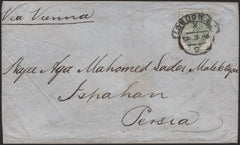 Via Vienna
LONDON
Naja Aga Mahomed Sader Malektojar
Ispahan
Persia